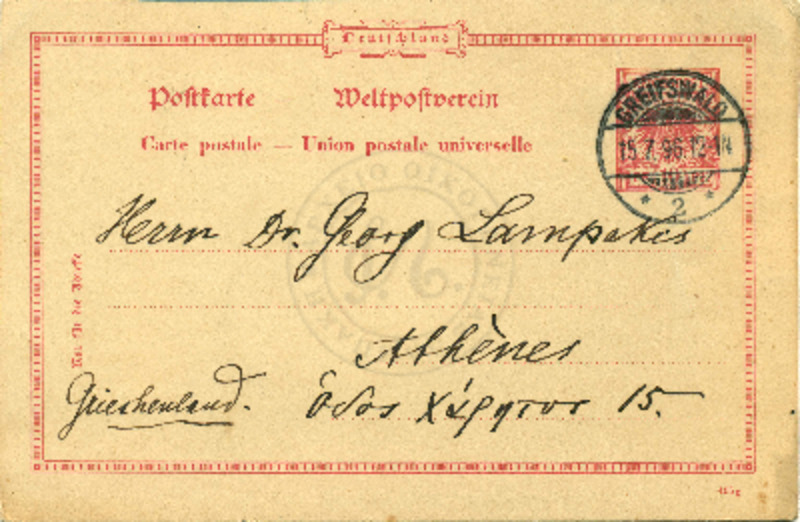 Deutschland
Postkarte Weltpostverein
Carte postale — Union postale universelle
GREIFSWALD
15.7.96.12-1N
* 2 *
Herrn Dr. Georg Lampakis
Nur für die Adresse
Athènes
Griechenland. ὁδος Χάρητος 15.